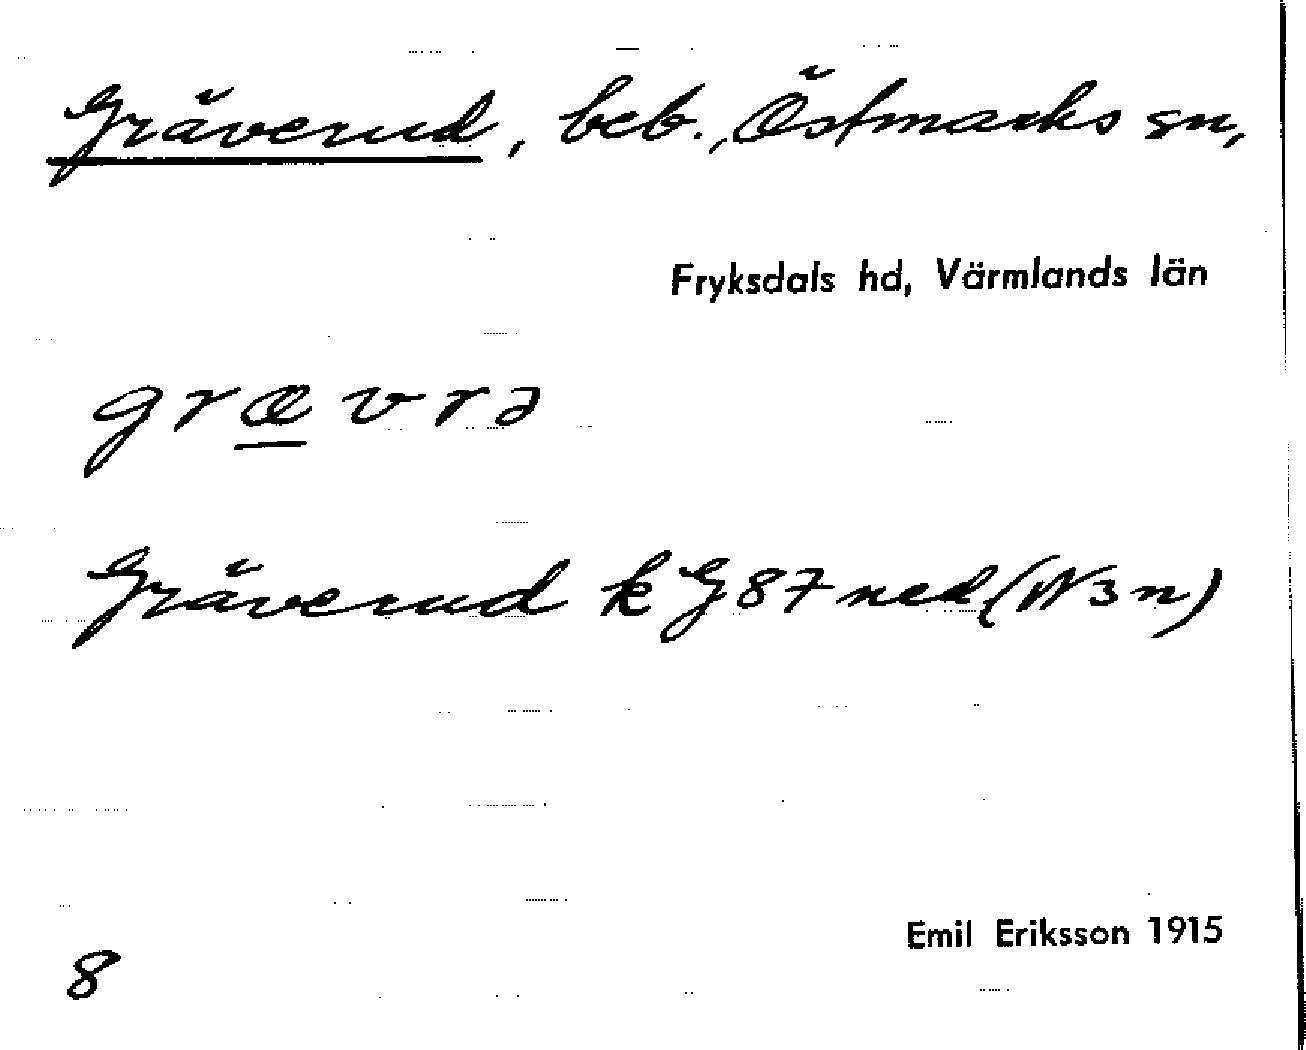 Gräverud, beb., Östmarks sn,
Fryksdals hd, Värmlands län
grævrə
Gräverud k G 87 ned (W3n)
Emil Eriksson 1915
8